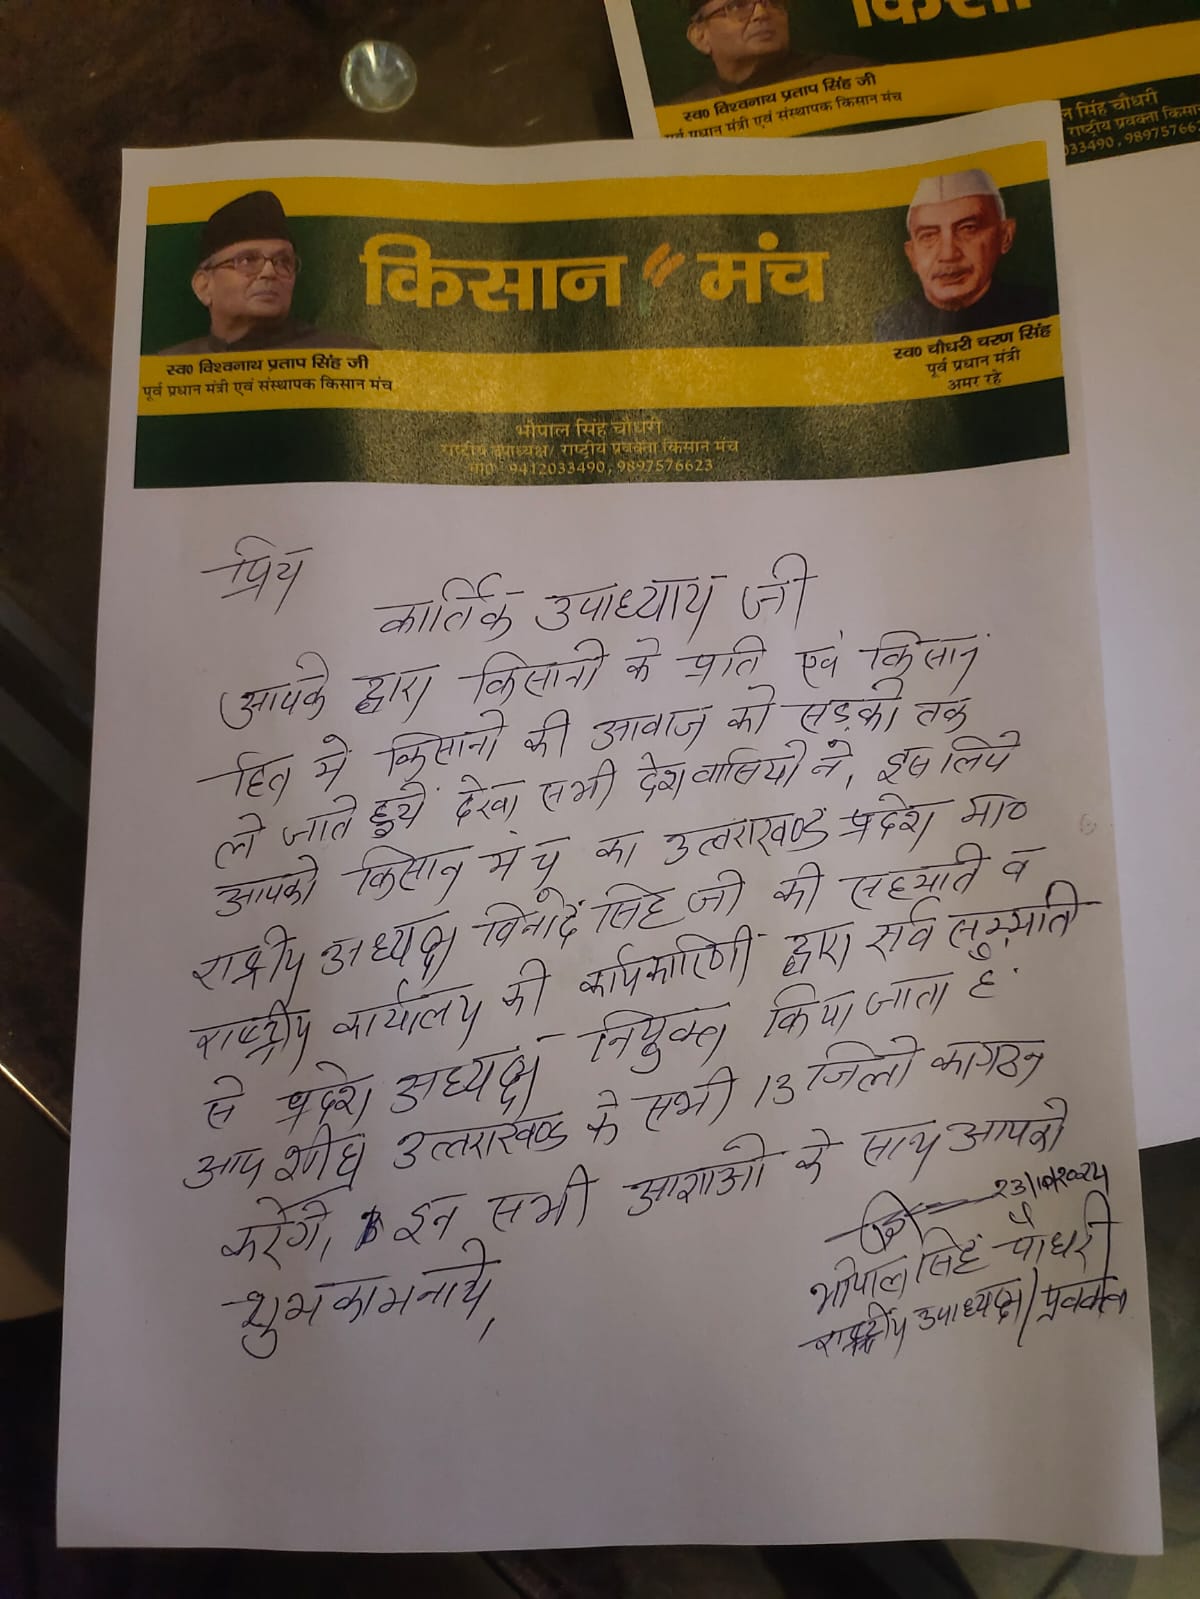 किसा
स्व० विश्वनाथ प्रताप सिंह जी
पूर्व प्रधान मंत्री एवं संस्थापक किसान मंच
ल सिंह चौधरी
राष्ट्रीय प्रवक्ता किसा
033490, 989757662
किसान मंच
स्व० विश्वनाथ प्रताप सिंह जी
पूर्व प्रधान मंत्री एवं संस्थापक किसान मंच
स्व० चौधरी चरण सिंह
पूर्व प्रधान मंत्री
अमर रहे
भोपाल सिंह चौधरी
राष्ट्रीय उपाध्यक्ष/ राष्ट्रीय प्रवक्ता किसान मंच
मो० : 9412033490, 9897576623
प्रिय
कार्तिक उपाध्याय जी
आपके द्वारा किसानो के प्रति एवं किसान
हित में किसानो की आवाज को सड़को तक
ले जाते हुये देखा सभी देशवासियो ने, इस लिये
आपको किसान मंच का उत्तराखण्ड प्रदेश मा०
राष्ट्रीय अध्यक्ष विनोद सिंह जी की सहमति व
राष्ट्रीय कार्यालय की कार्यकारिणी द्वारा सर्व सम्मति
से प्रदेश अध्यक्ष नियुक्त किया जाता है
आप शीघ्र उत्तराखण्ड के सभी 13 जिलो का गठन
करेंगे, इन सभी आशाओ के साथ आपको
शुभकामनाये,
23/10/2024
भोपाल सिंह चौधरी
राष्ट्रीय उपाध्यक्ष/प्रवक्ता